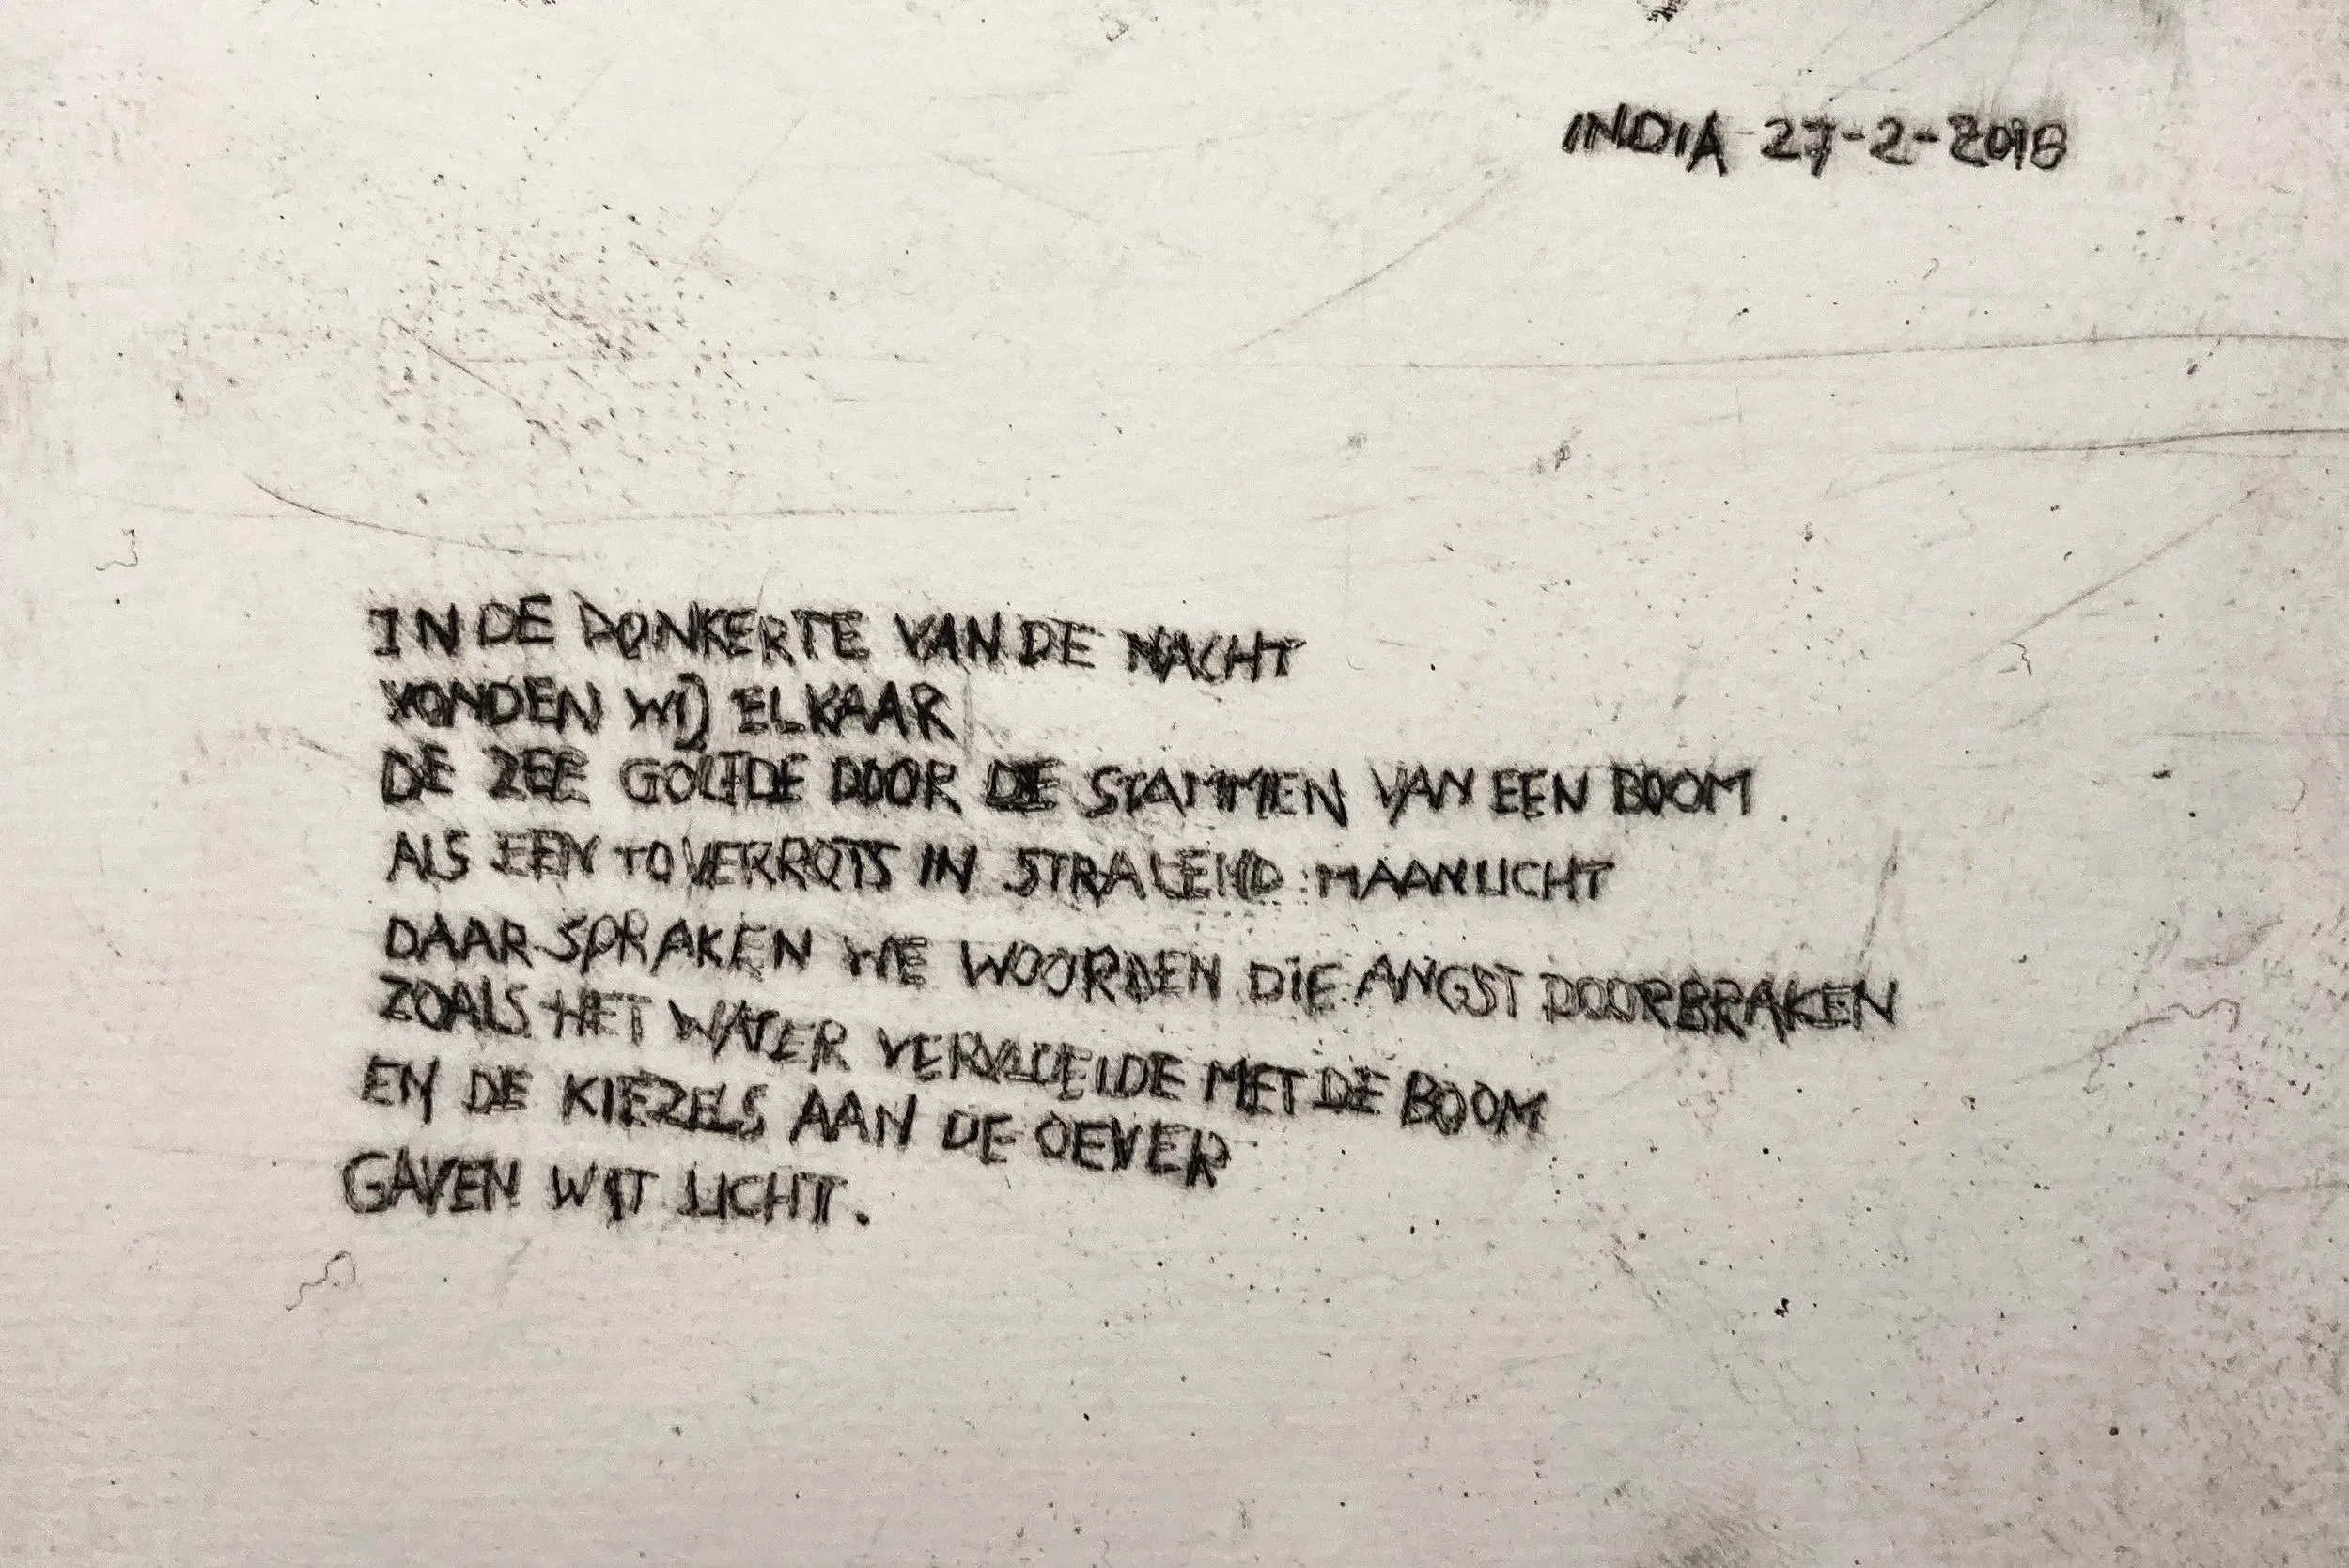 INDIA 27-2-2018
IN DE DONKERTE VAN DE NACHT
VONDEN WIJ ELKAAR
DE ZEE GOLFDE DOOR DE STAMMEN VAN EEN BOOM
ALS EEN TOVERROTS IN STRALEND MAANLICHT
DAAR SPRAKEN WE WOORDEN DIE ANGST DOORBRAKEN
ZOALS HET WATER VERVLOEIDE MET DE BOOM
EN DE KIEZELS AAN DE OEVER
GAVEN WIT LICHT.